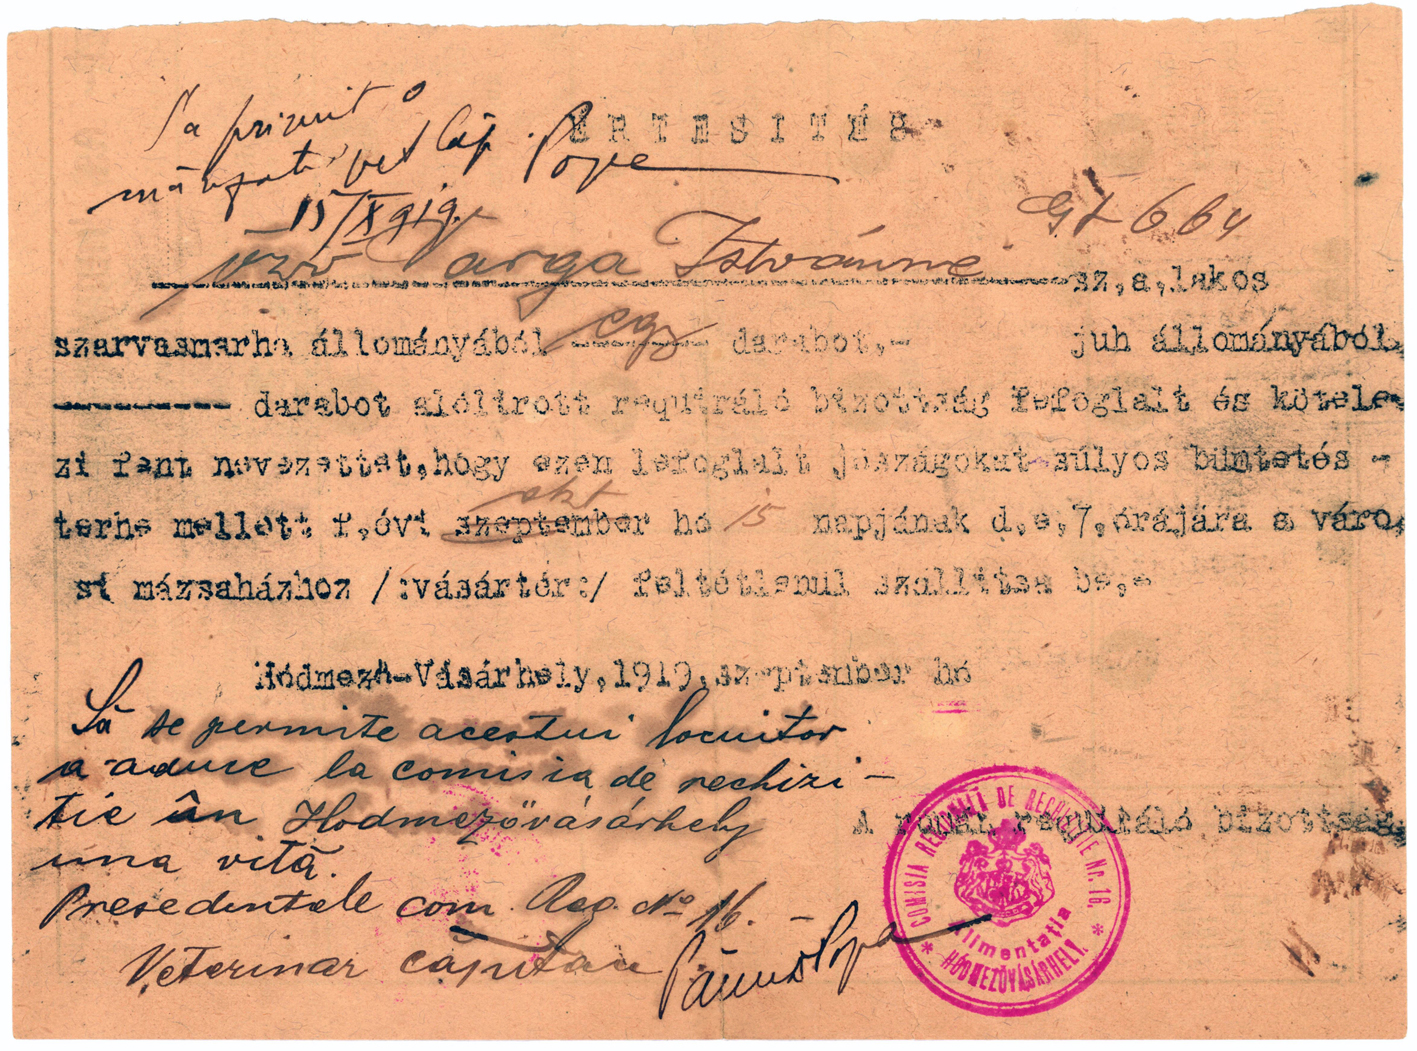 ÉRTESITÉS
S'a primit o
mânzată vet Căp. Popa
15/IX 919.
Gt 664
özv Varga Istvánné sz,a,lakos
szarvasmarha állományából egy darabot,- juh állományából,
---------- darabot alólirott requiráló bizottság lefoglalt és kötele-
zi fent nevezettet,hogy ezen lefoglalt jószágokat súlyos büntetés -
terhe mellett f,évi szeptember okt hó 15 napjának d,e,7,órájára a váro,
si mázsaházhoz /:vásártér:/ feltétlenül szállitsa be,-
Hódmező-Vásárhely,1919,szeptember hó
Să se permite acestui locuitor
a aduce la comisia de rechizi-
tie în Hodmezövásárhely
una vită.
A román requiráló bizottság,
Presedintele com. Req. No 16. -
Veterinar căpitan Popa
COMISIA REGIONALĂ DE RECHISIȚIE Nr. 16.
Alimentația
* HÓDMEZŐVÁSÁRHELY. *